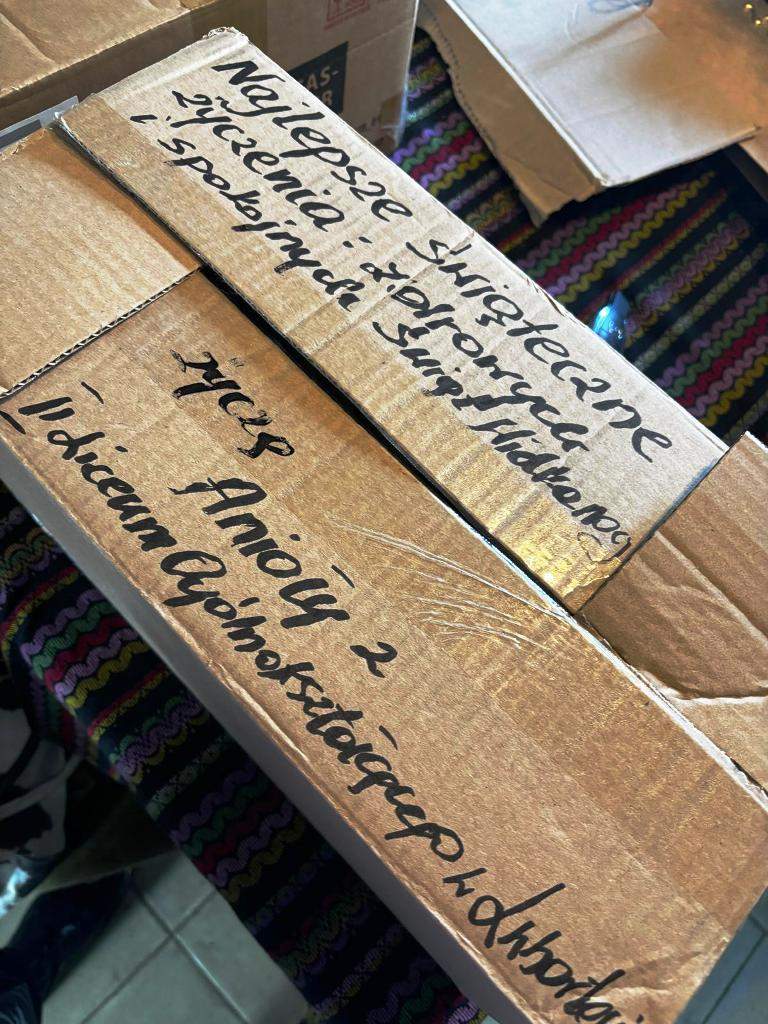 Najlepsze świąteczne
życzenia: zdrowych
i spokojnych Świąt Wielkanocy
życzą
Anioły z
II Liceum Ogólnokształcącego w
AS-